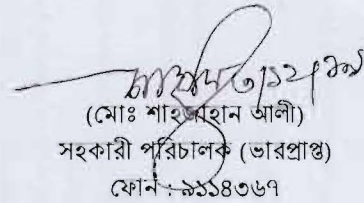 (মোঃ শাহজাহান আলী)
সহকারী পরিচালক (ভারপ্রাপ্ত)
ফোন : ৯১১৪৩৬৭